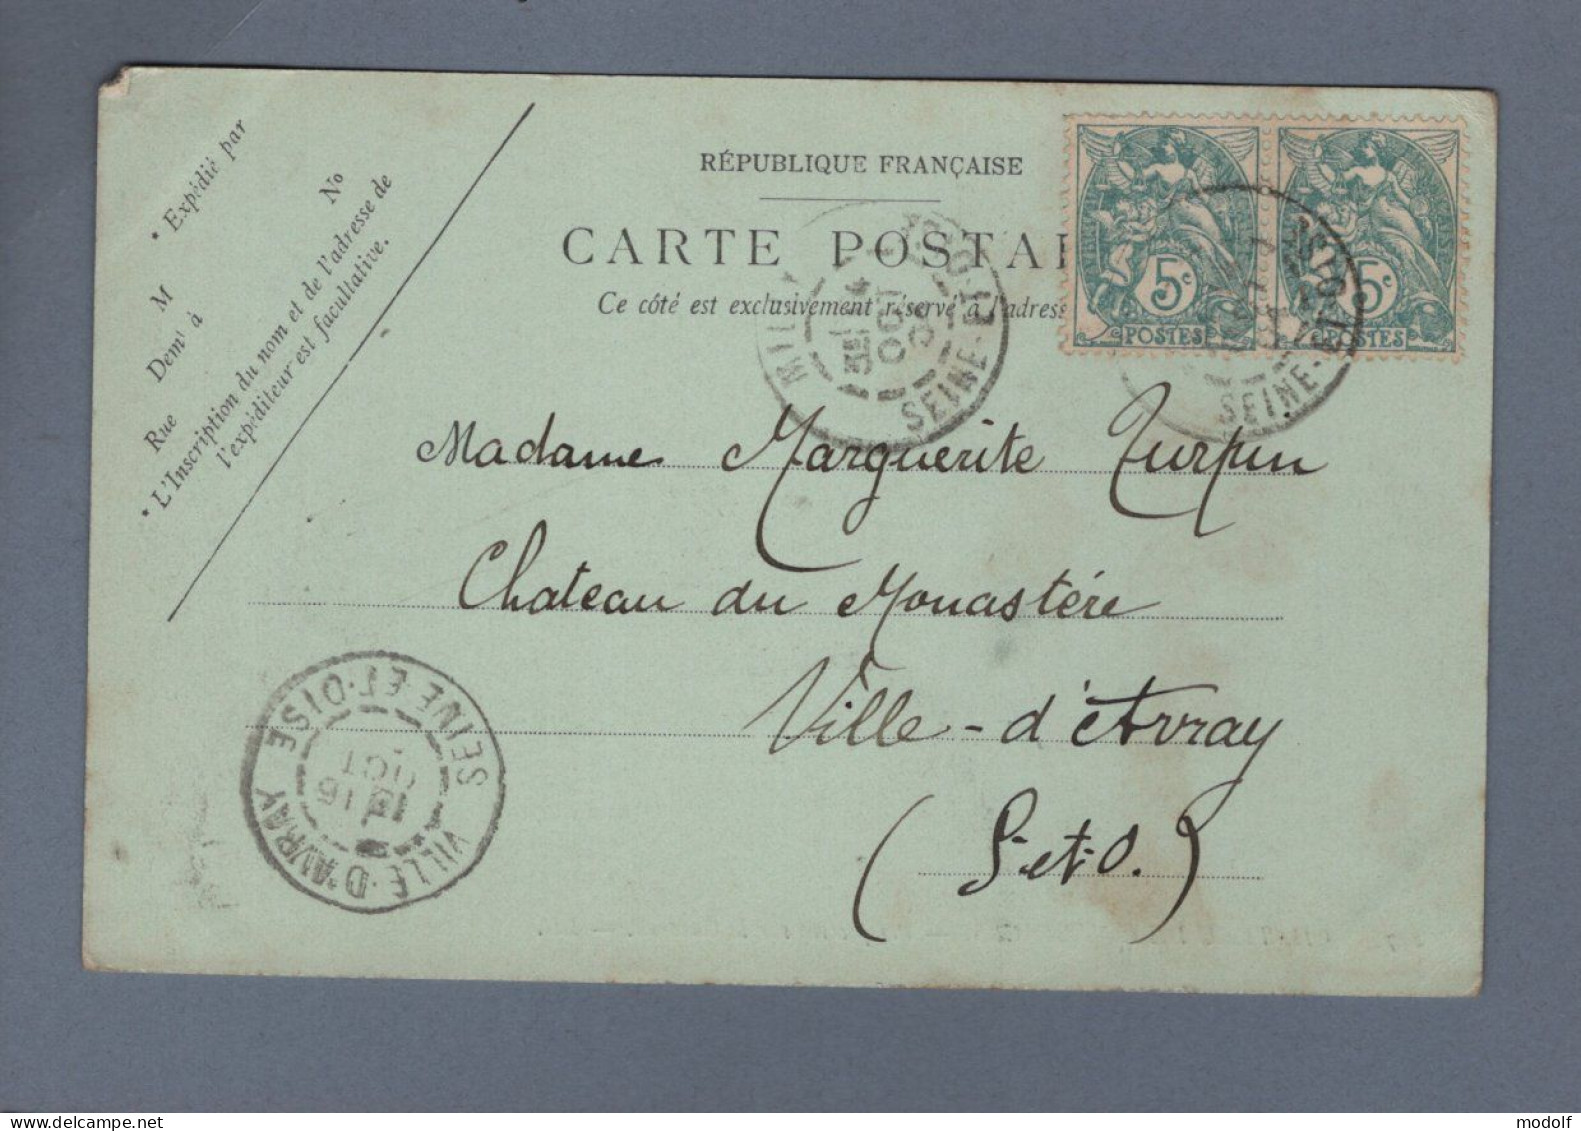 RÉPUBLIQUE FRANÇAISE
CARTE POSTA
Ce côté est exclusivement réservé à l'adress
• Expédié par
M
Nº
Demt à
Rue
• L'Inscription du nom et de l'adresse de
l'expéditeur est facultative.
5c
POSTES
5c
POSTES
OCT
SEINE-ET-O
SEINE-
Madame Marguerite Turpin
Chateau du Monastére
Ville-d'Avray
(S-et-O.)
VILLE-D'AVRAY
SEINE-ET-OISE
OCT
modolf